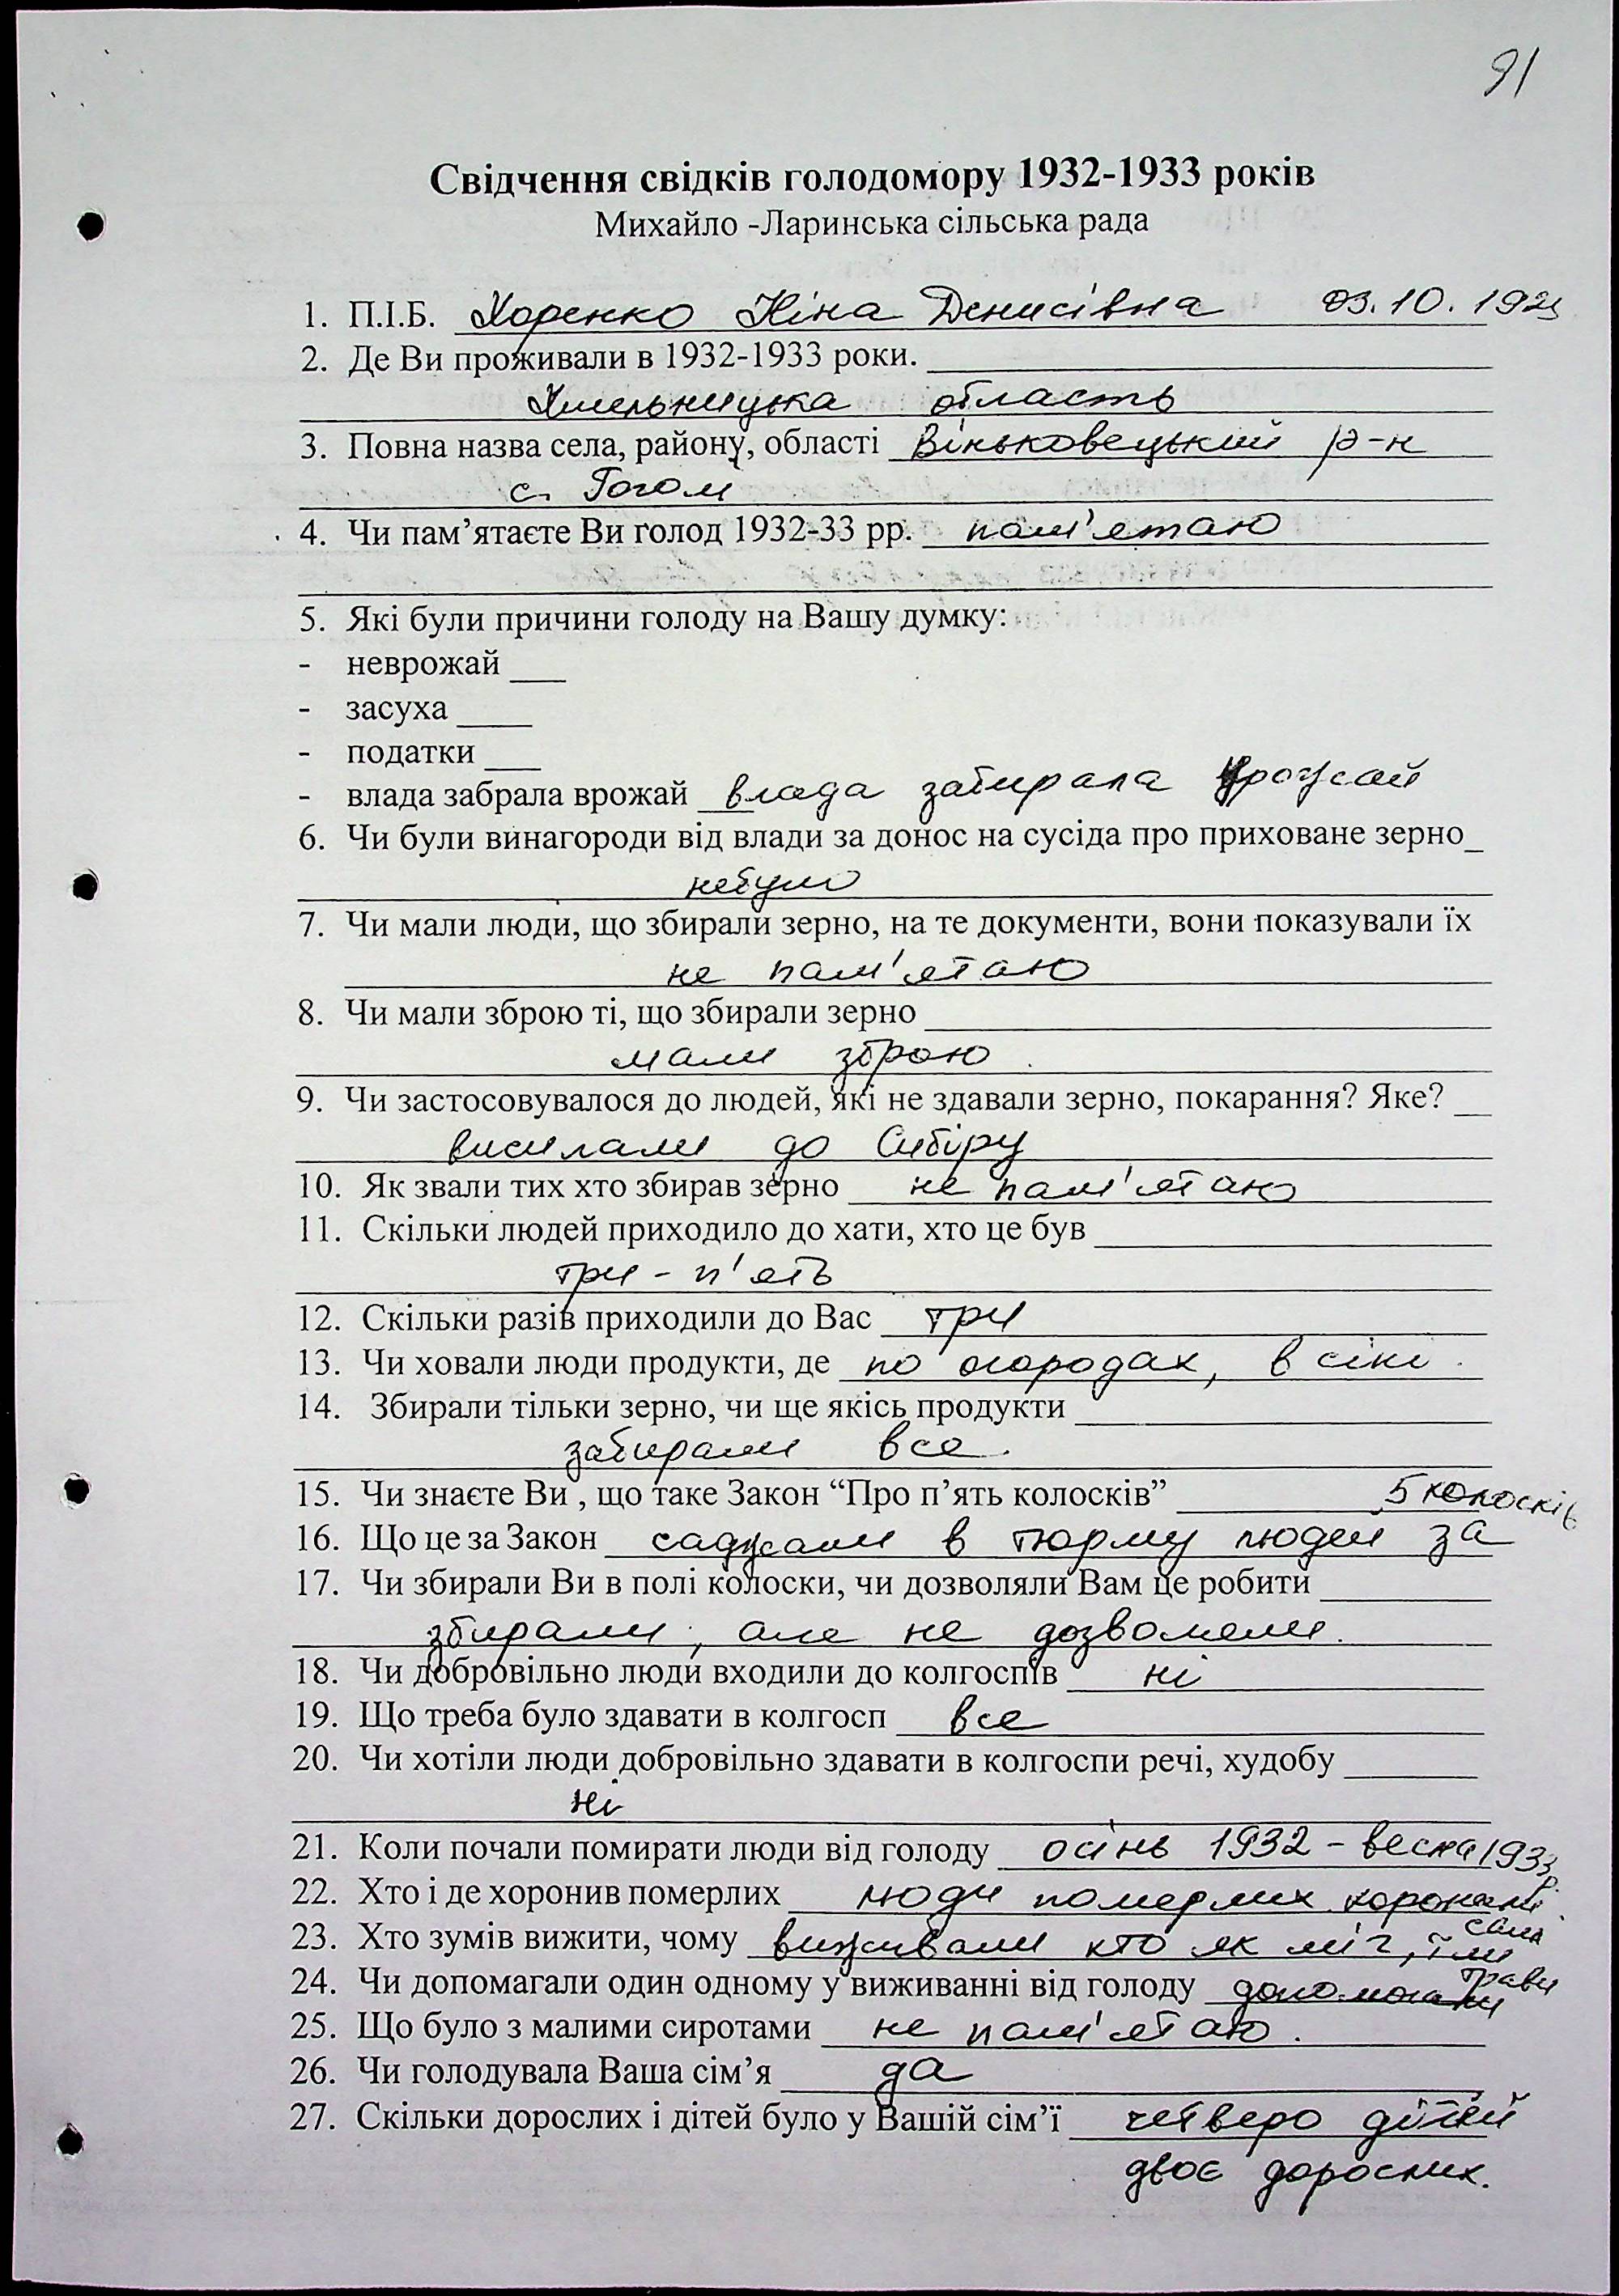 91
Свідчення свідків голодомору 1932-1933 років
Михайло -Ларинська сільська рада
1. П.І.Б. Хоренко Ніна Денисівна 03.10.1923
2. Де Ви проживали в 1932-1933 роки.
Хмельницька область
3. Повна назва села, району, області Віньковецький р-н
с. Гоголи
4. Чи пам’ятаєте Ви голод 1932-33 рр. пам'ятаю
5. Які були причини голоду на Вашу думку:
- неврожай
- засуха
- податки
- влада забрала врожай влада забирала врожай
6. Чи були винагороди від влади за донос на сусіда про приховане зерно
небуло
7. Чи мали люди, що збирали зерно, на те документи, вони показували їх
не пам'ятаю
8. Чи мали зброю ті, що збирали зерно
мали зброю.
9. Чи застосовувалося до людей, які не здавали зерно, покарання? Яке?
висилали до Сибіру
10. Як звали тих хто збирав зерно не пам'ятаю
11. Скільки людей приходило до хати, хто це був
три - п'ять
12. Скільки разів приходили до Вас три
13. Чи ховали люди продукти, де по огородах, в сіні.
14. Збирали тільки зерно, чи ще якісь продукти
забирали все.
15. Чи знаєте Ви , що таке Закон “Про п’ять колосків” 5 колосків
16. Що це за Закон саджали в тюрму людей за
17. Чи збирали Ви в полі колоски, чи дозволяли Вам це робити
збирали, але не дозволяли.
18. Чи добровільно люди входили до колгоспів ні
19. Що треба було здавати в колгосп все
20. Чи хотіли люди добровільно здавати в колгоспи речі, худобу
ні
21. Коли почали помирати люди від голоду осінь 1932 - весна 1933 р.
22. Хто і де хоронив померлих люди померлих хоронили
сами
23. Хто зумів вижити, чому виживали хто як міг, їли
трави
24. Чи допомагали один одному у виживанні від голоду допомогали
25. Що було з малими сиротами не пам'ятаю.
26. Чи голодувала Ваша сім’я да
27. Скільки дорослих і дітей було у Вашій сім’ї четверо дітей
двоє дорослих.